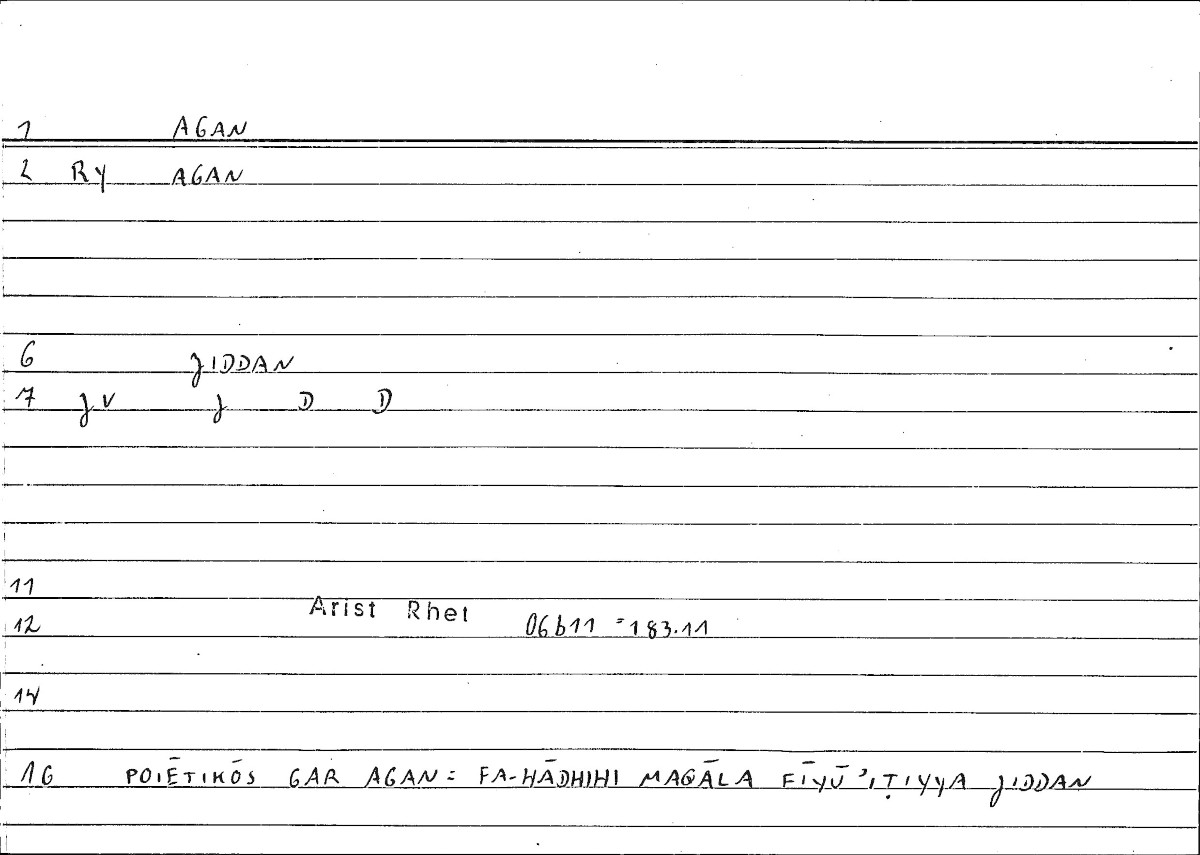 1 AGAN
2 RY AGAN
6 JIDDAN
7 JV J D D
11
Arist Rhet
12 06b11 = 183.11
14
16 POIĒTIKŌS GAR AGAN = FA-HĀDHIHI MAQĀLA FĪYŪʾIṬIYYA JIDDAN